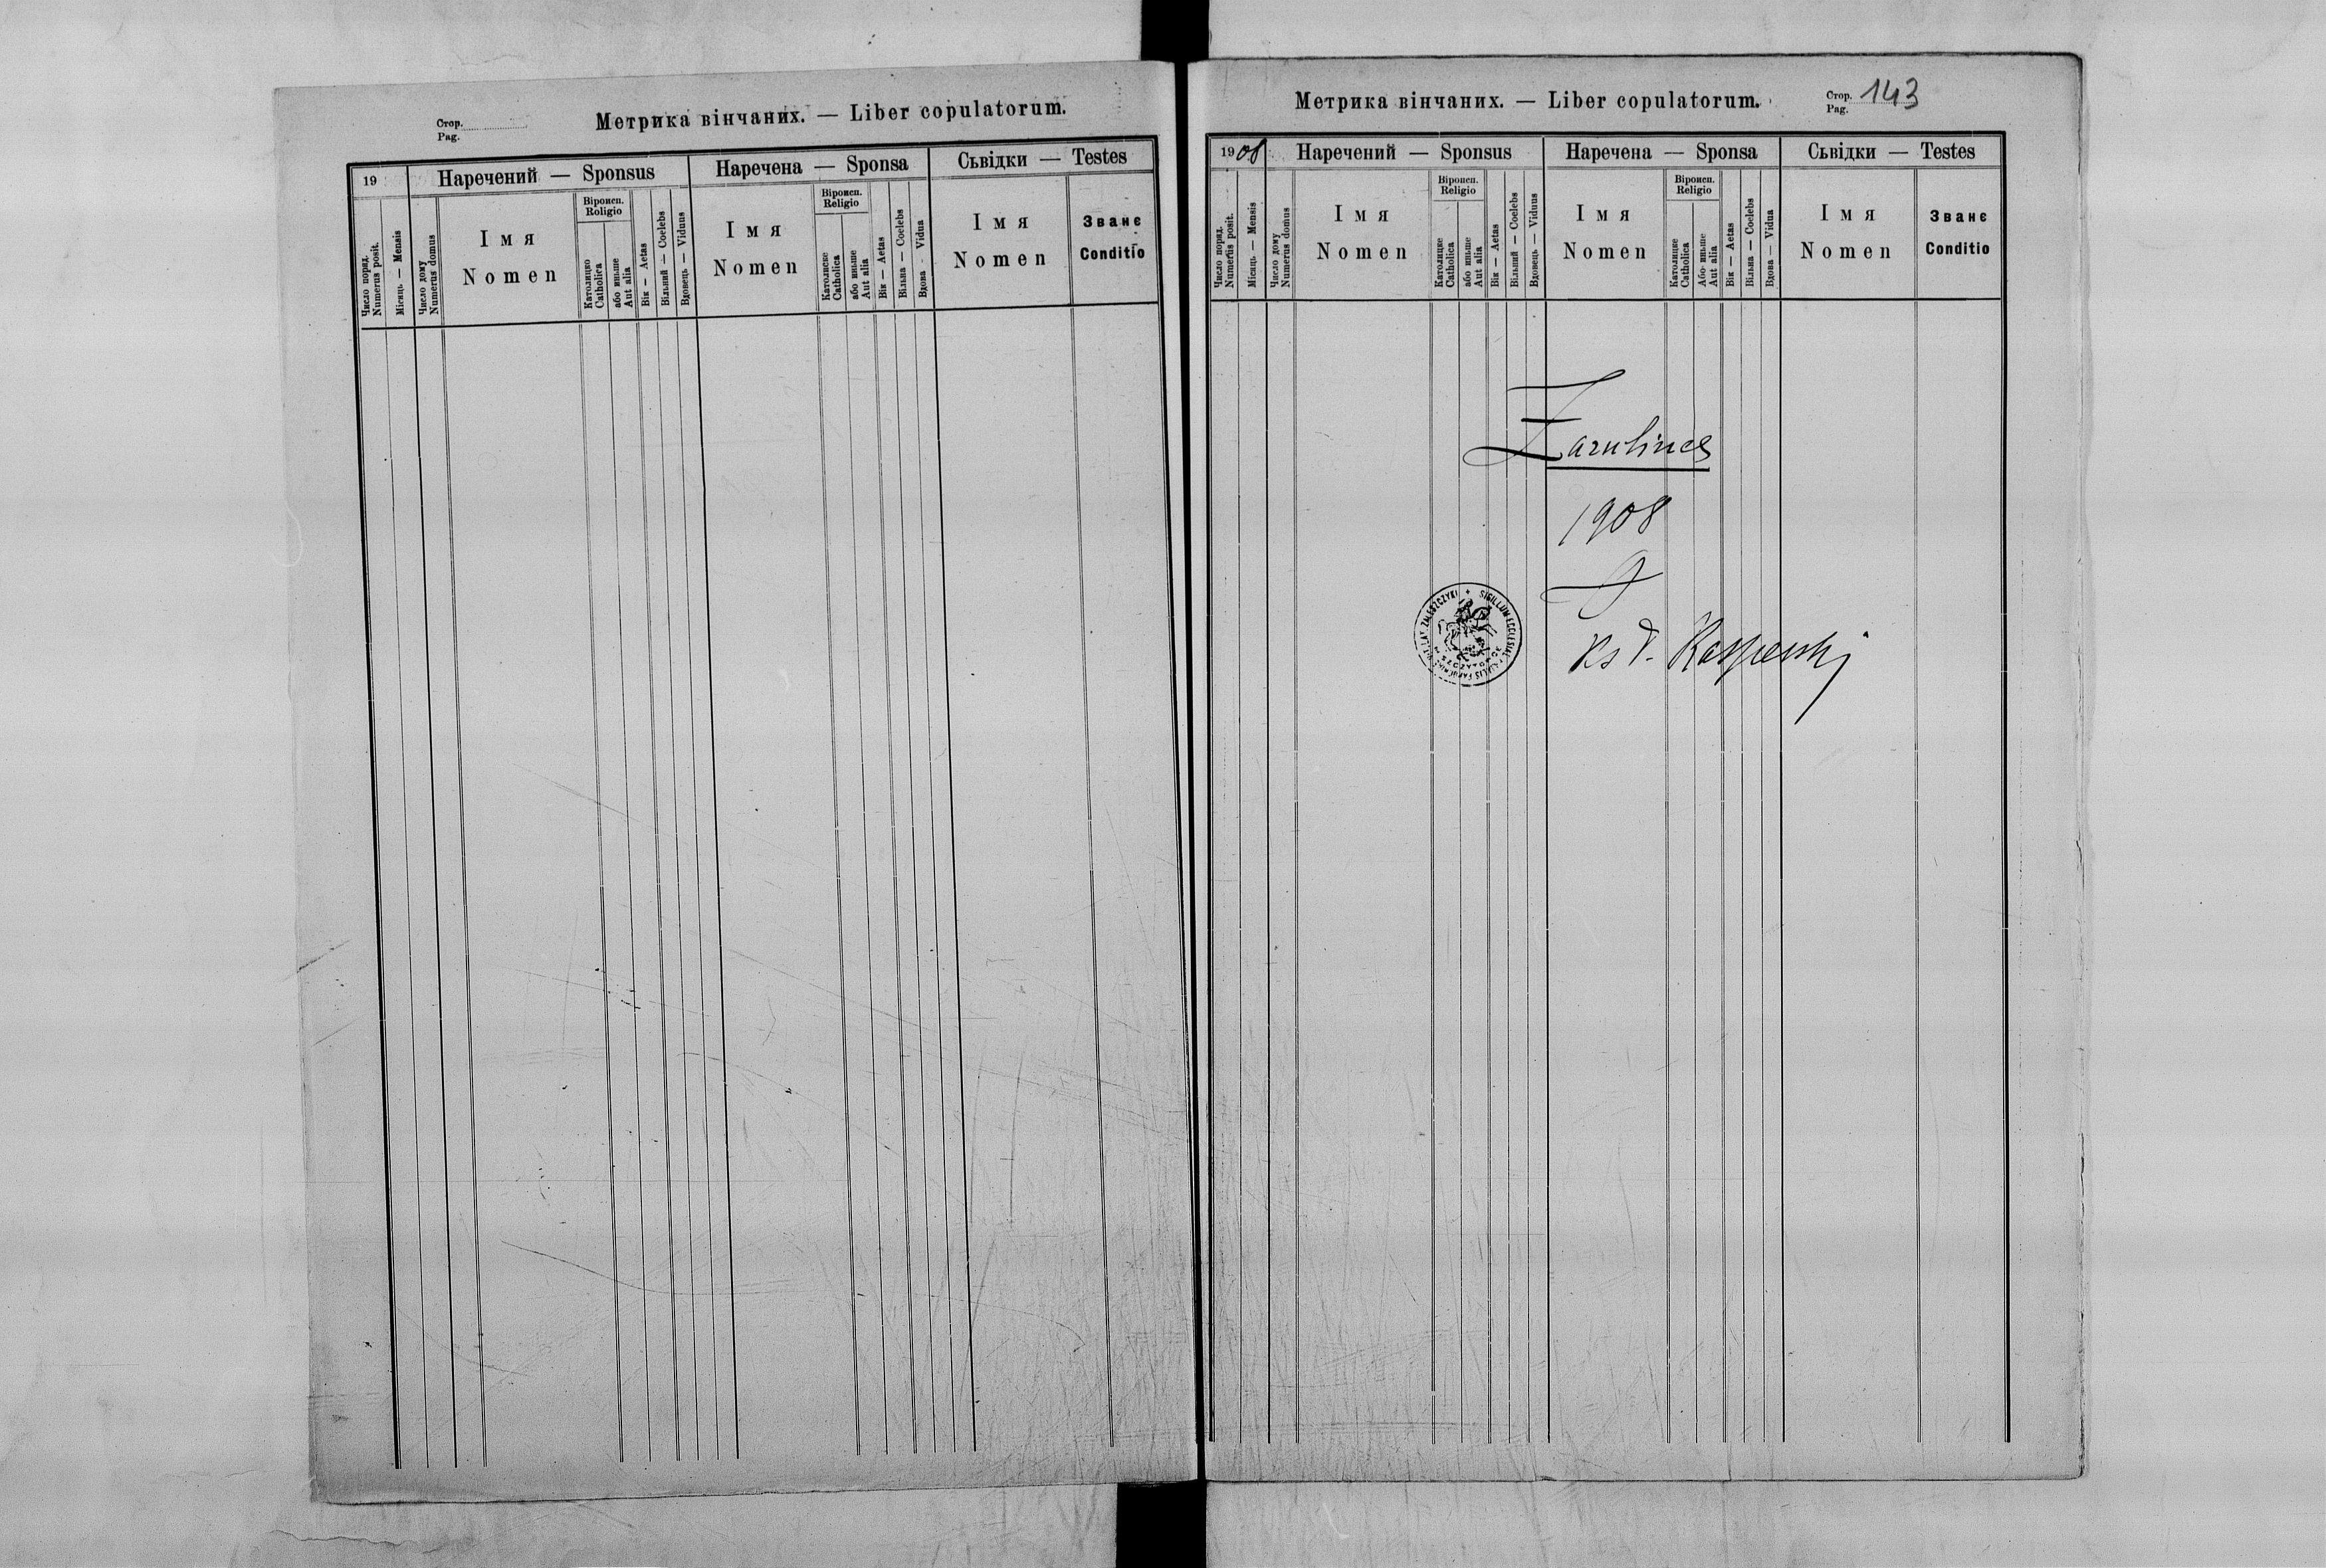 Стор.
Pag.
Метрика вінчаних. — Liber copulatorum.
19
Наречений — Sponsus
Наречена — Sponsa
Сьвідки — Testes
Число поряд.
Numerus posit.
Місяць — Mensis
Число дому
Numerus domus
Імя
Nomen
Віроисп.
Religio
Католицке
Catholica
або иньше
Aut alia
Вік — Aetas
Вільний — Coelebs
Вдовець — Viduus
Імя
Nomen
Віроисп.
Religio
Католицке
Catholica
або иньше
Aut alia
Вік — Aetas
Вільна — Coelebs
Вдова - Vidua
Імя
Nomen
Званє
Conditio
Метрика вінчаних. — Liber copulatorum.
Стор.
Pag. 143
1908
Наречений — Sponsus
Наречена — Sponsa
Сьвідки — Testes
Число поряд.
Numerus posit.
Місяць — Mensis
Число дому
Numerus domus
Імя
Nomen
Віроисп.
Religio
Католицке
Catholica
або иньше
Aut alia
Вік — Aetas
Вільний — Coelebs
Вдовець — Viduus
Імя
Nomen
Віроисп.
Religio
Католицке
Catholica
Або иньше
Aut alia
Вік — Aetas
Вільна — Coelebs
Вдова — Vidua
Імя
Nomen
Званє
Conditio
1908
SIGILLUM ECCLESIAE
ZALESZCZYKI